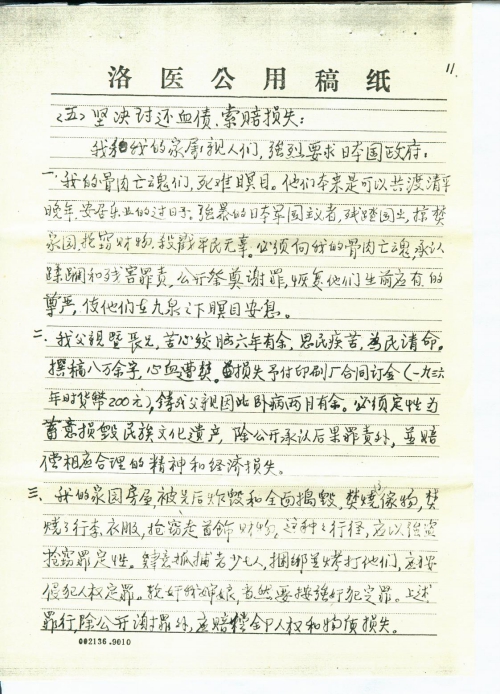 洛医公用稿纸
11.
〈五〉坚决讨还血债、索赔损失：
我和我的家属亲人们，强烈要求日本国政府：
一、我的骨肉亡魂们，死难瞑目。他们本来是可以共渡清平
晚年，安居乐业的过日子；强暴的日本军国主义者，残踏国土，掠焚
家园，抢窃财物，杀戳平民无辜。必须向我的骨肉亡魂，承认
蹂躏和残害罪责，公开祭奠谢罪，恢复他们生前应有的
尊严，使他们在九泉之下瞑目安息。
二、我父亲暨长兄，苦心绞脑六年有余，思民疾苦，为民请命。
撰稿八万余字，心血遭焚。损失予付印刷厂合同订金（一九三六
年时货幣200元），我父亲因此卧病两月有余。必须定性为
蓄意损毁民族文化遗产，除公开承认后果罪责外，並赔
偿相应合理的精神和经济损失。
三、我的家园房屋，被先后炸毁和全面捣毁。焚烧傢物，焚
烧了行李、衣服，抢窃走首飾财物，这种种行径，应以强盗
抢窃罪定性。肆意抓捕老少七人，捆绑並烤打他们，应按
侵犯人权定罪。软奸我婶娘，当然要按强奸犯定罪。上述
罪行，除公开谢罪外，应赔偿全部人权和物质损失。
002136.9010